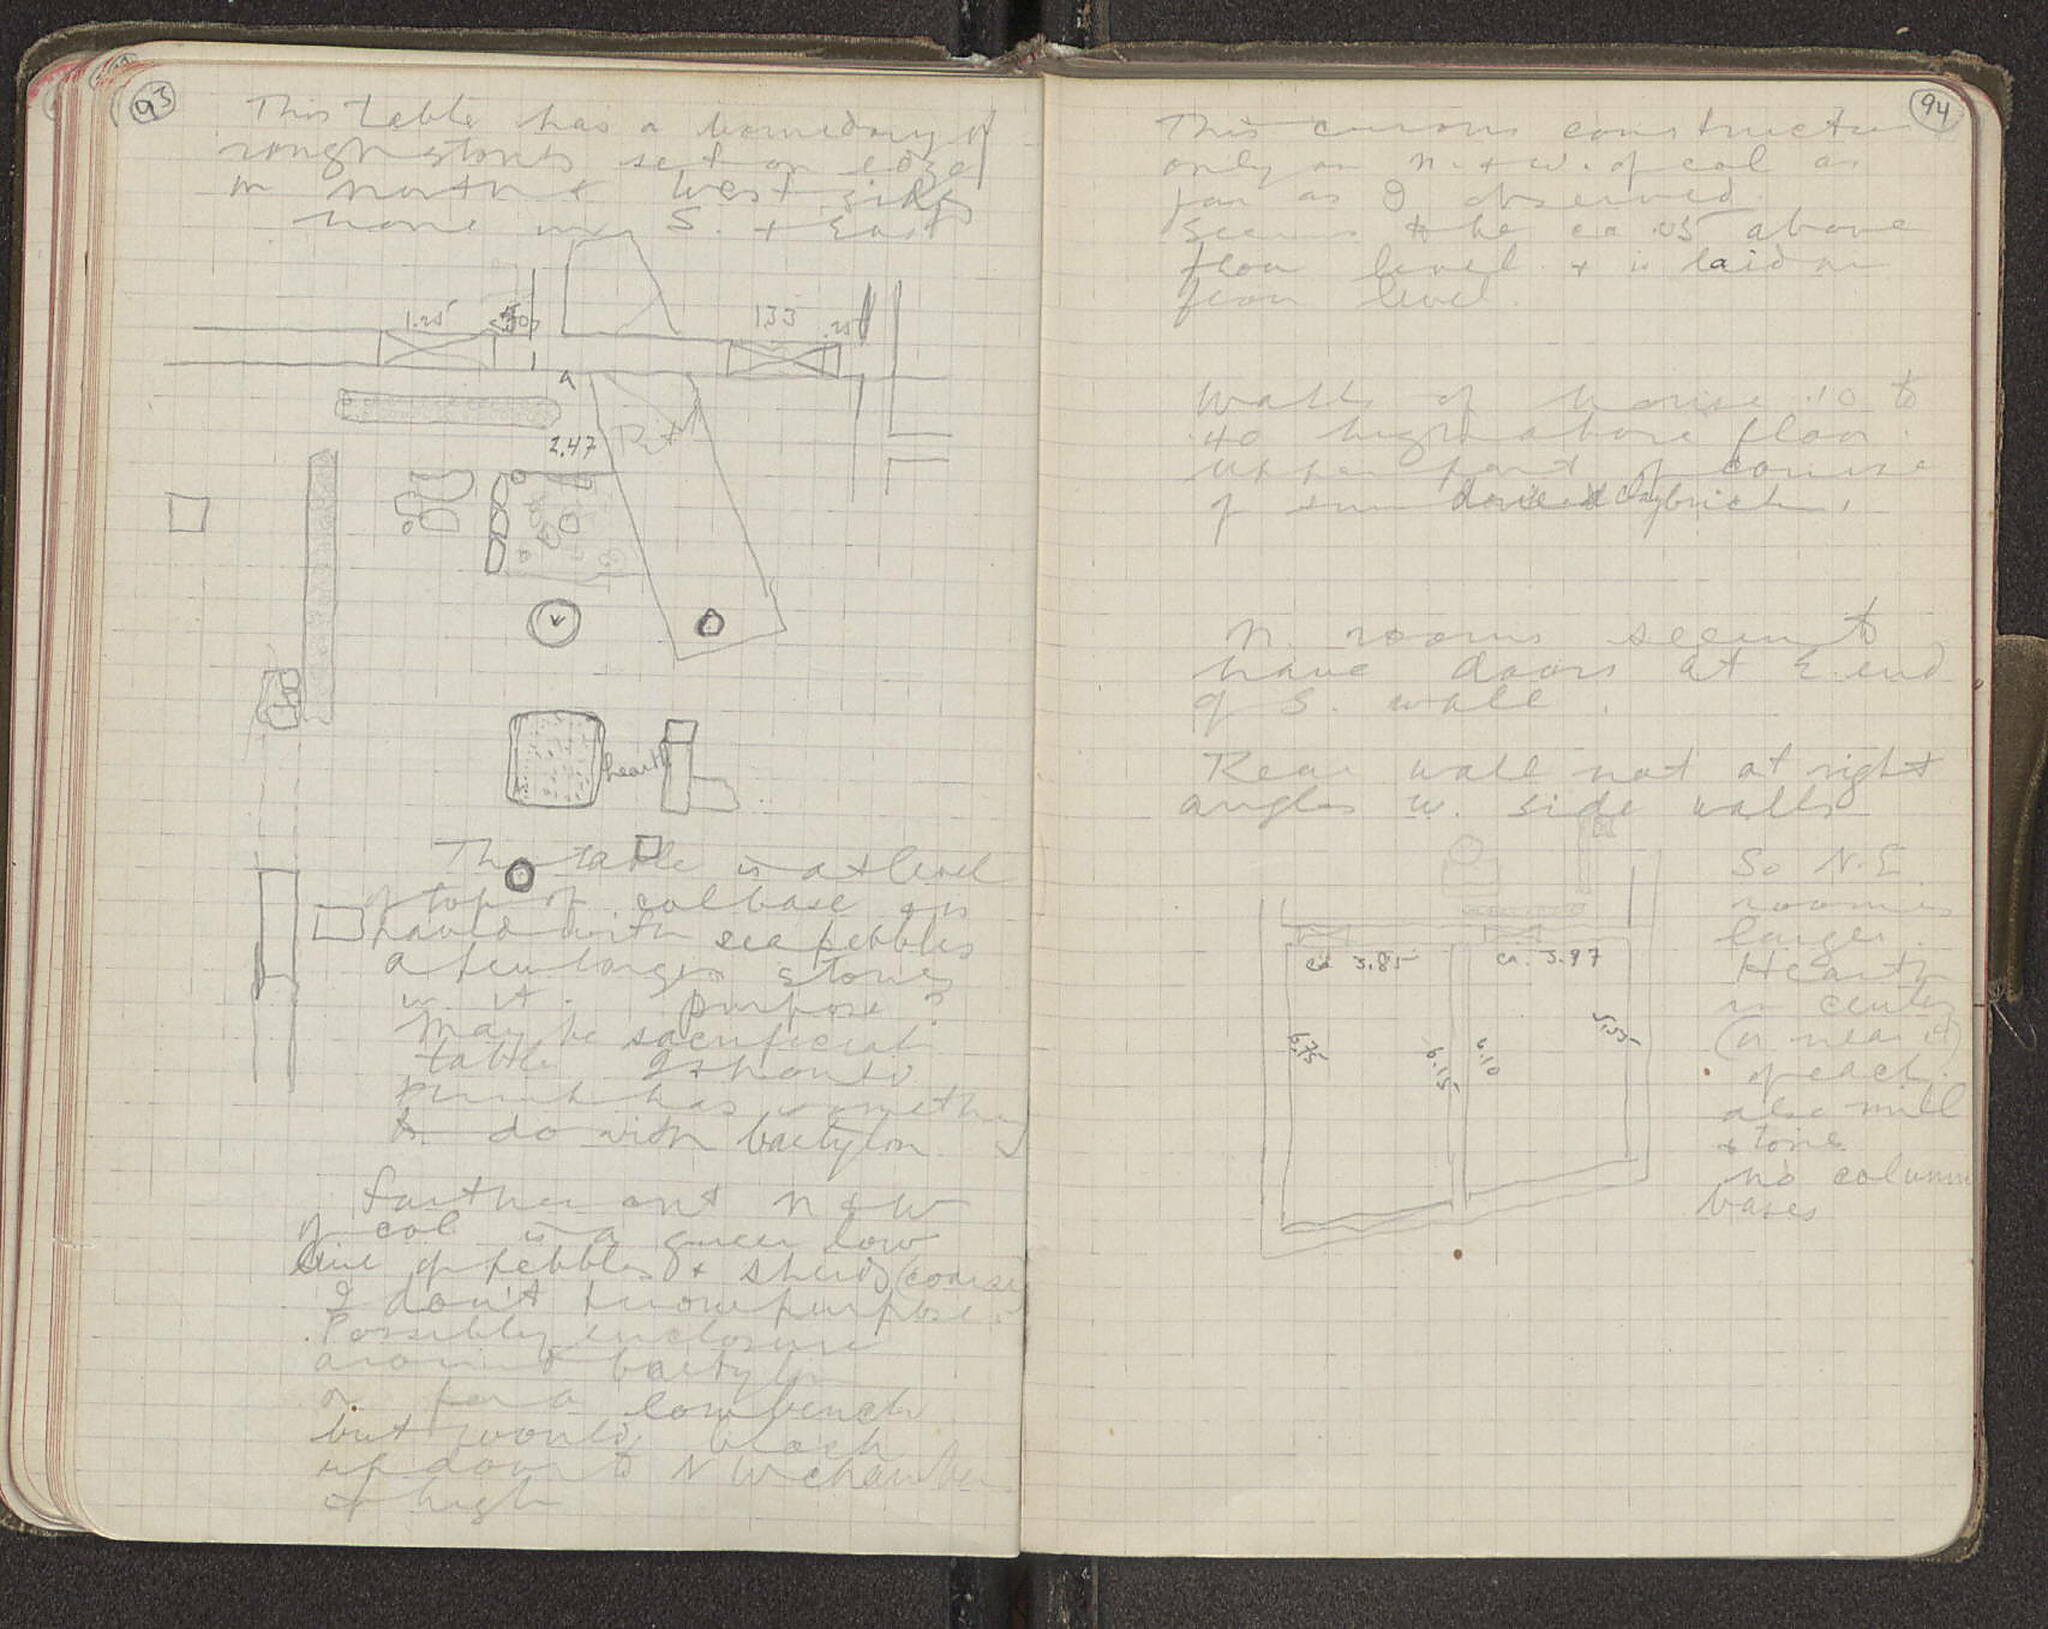 93
This table has a boundary of
rough stones set on edge
on north & West sides
none on S. + East
1.25 .50
133 .25
a
2.47 Pit
v
hearth
The table is at level
of top of col base & is
paved with sea pebbles
a few larger stones
w. it. purpose?
May be sacrificial
table I should
think has something
to do with baetylon
Further out N & W
of col is a queer low
line of pebbles & sherds (coarse)
I don't know purpose.
Possibly enclosure
around baetylon
or for a low bench
but would block
up door to NW chamber
& high
94
This curious construction
only on N. & W. of col as
far as I observed.
Seems to be ca .05 above
floor level & is laid on
floor level.
Walls of house .10 to
.40 high above floor.
upper part of course
of sun dried clay brick.
N. rooms seem to
have doors at E. end
of S. wall.
Rear wall not at right
angles w. side walls
So N.E.
room is
larger.
Hearth
in center
(or near it)
of each.
also mill
stone
no column
bases
ca 3.85 ca. 3.97
6.75 6.15 6.10 5.55